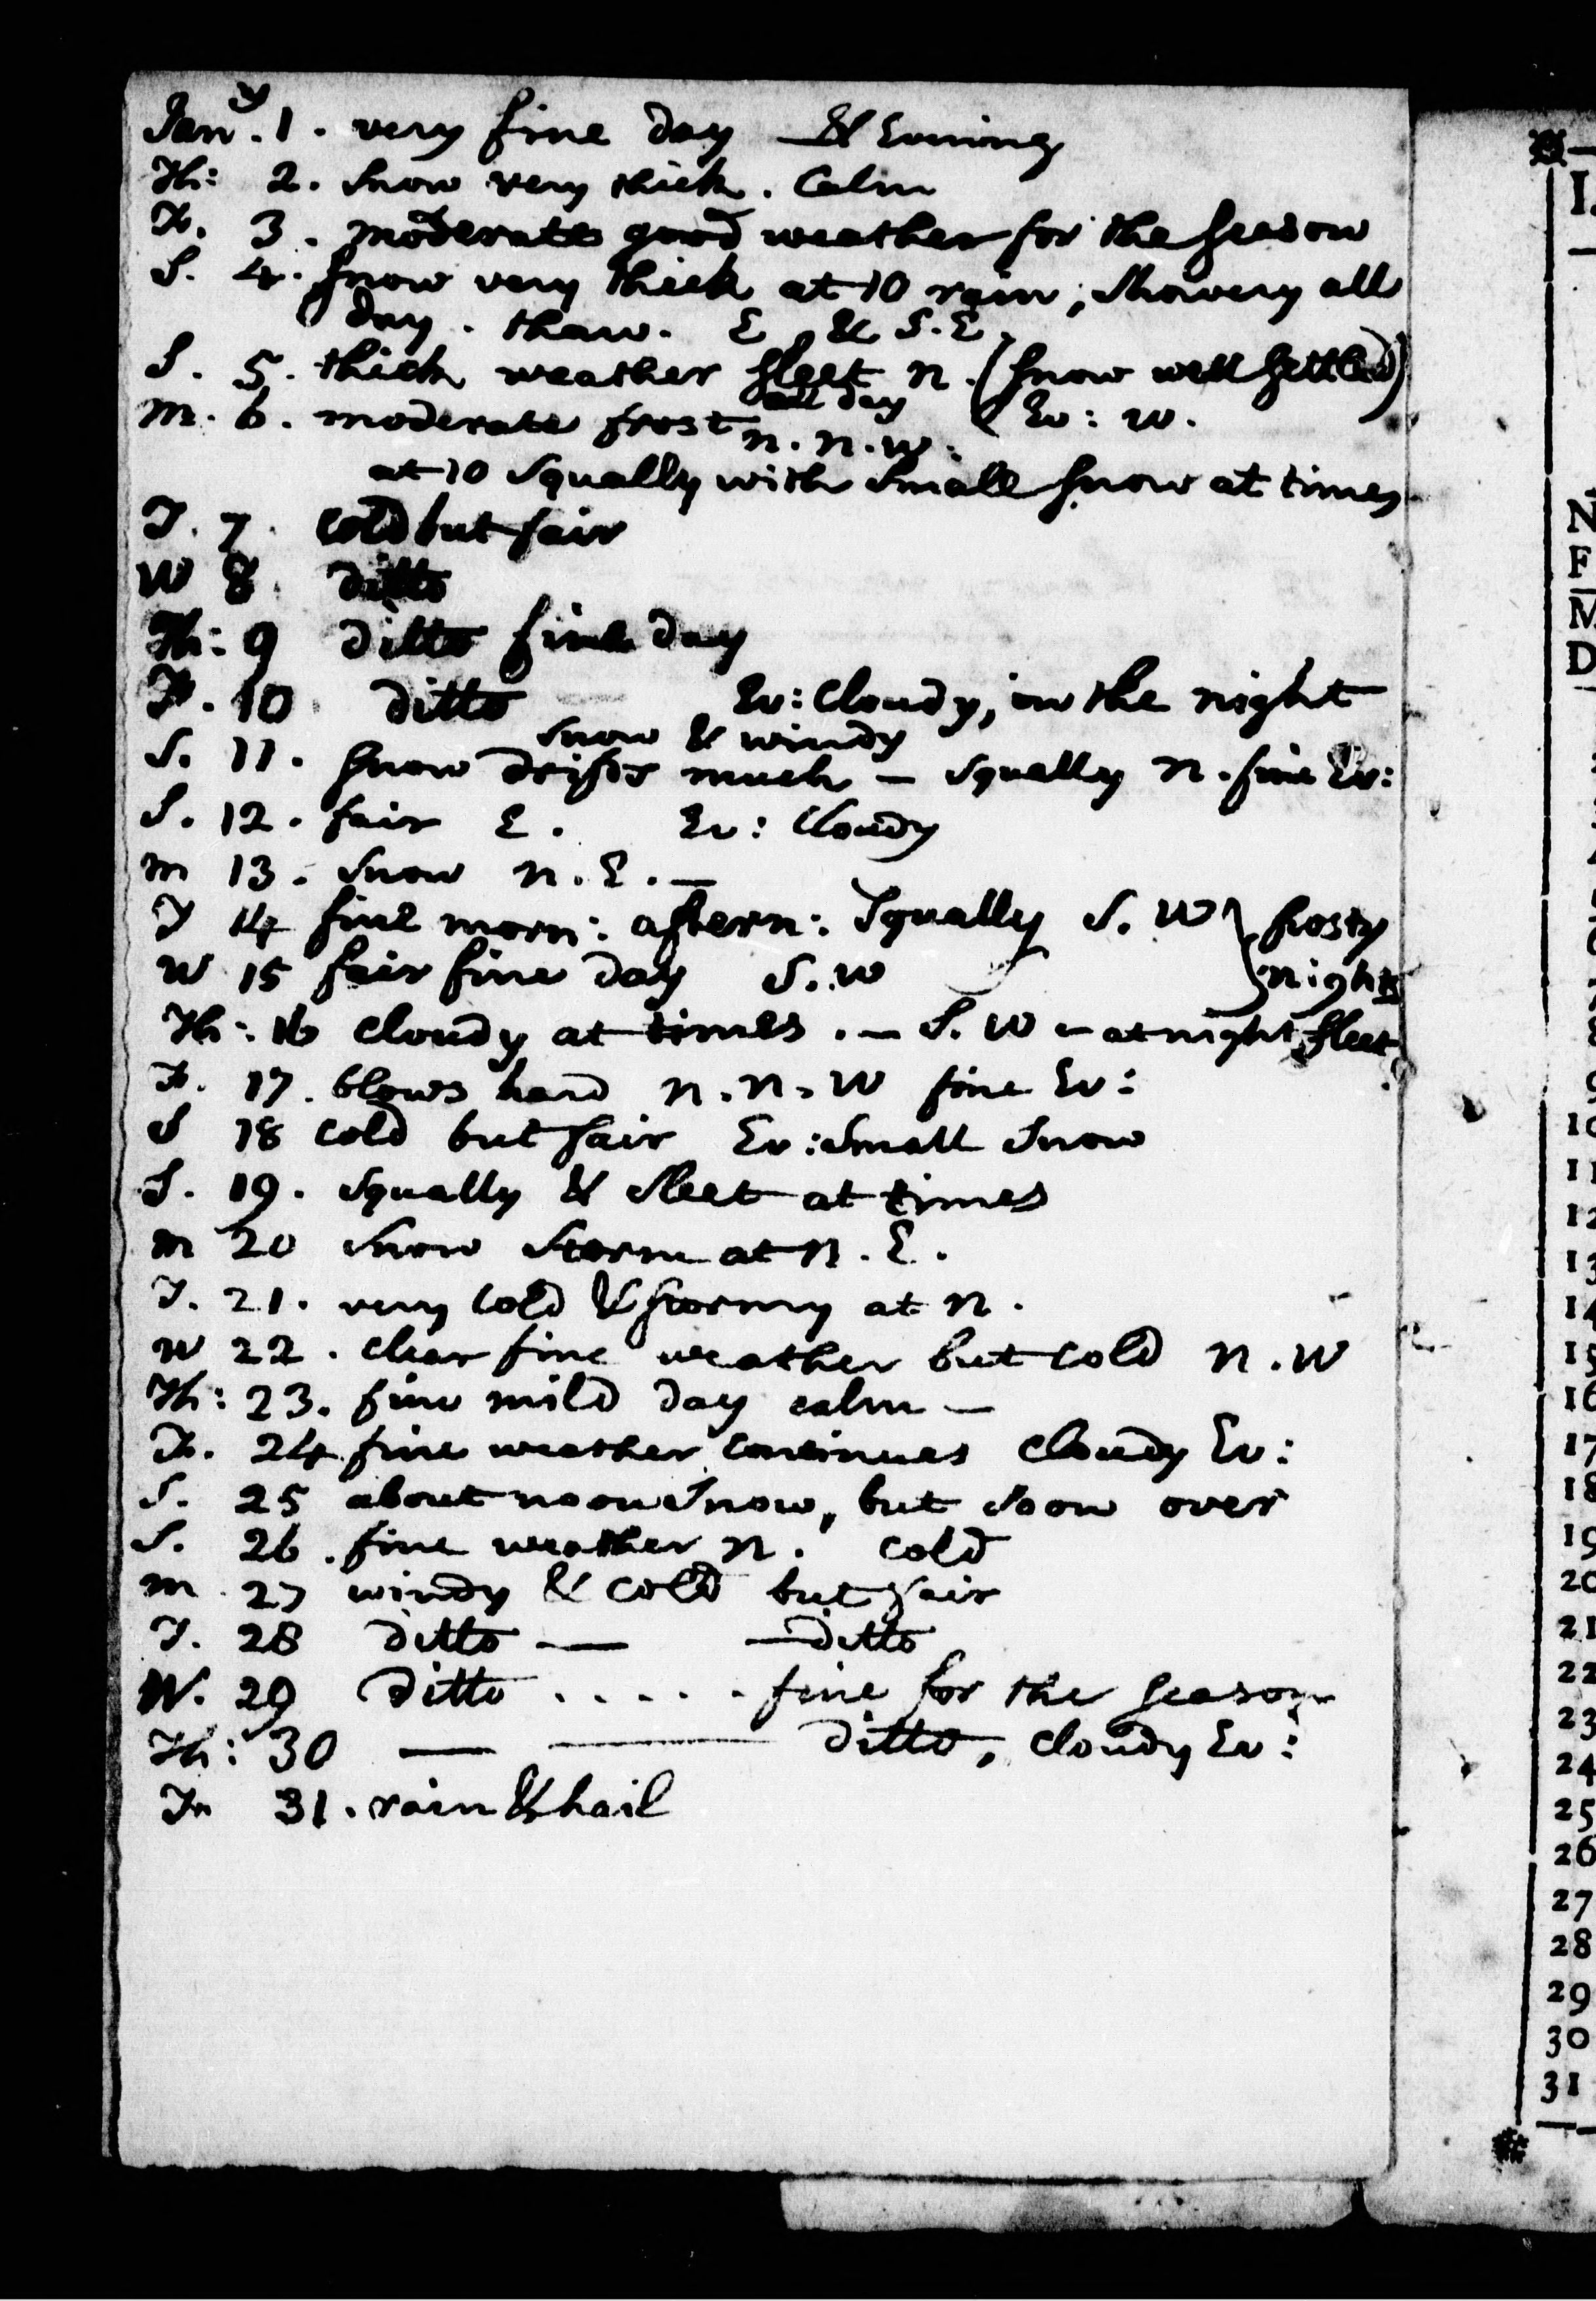 Jan.y 1. very fine day — & Evening
Th: 2. Snow very thick. Calm
F. 3. moderate good weather for the season
S. 4. snow very thick at 10 rain, showery all
day. thaw. E & S.E.
S. 5. thick weather sleet N. (snow well settled)
all day
M. 6. moderate frost N.N.W. Ev: W.
at 10 squally with small snow at times
T. 7. cold but fair
W 8. ditto
Th: 9 ditto fine day
F. 10. ditto Ev: cloudy, in the night
snow & windy
S. 11. snow drifts much — squally N. fine Ev:
S. 12. fair E. Ev: Cloudy
M 13. Snow N.E. —
T 14 fine morn: aftern: Squally S. W } frosty
W 15 fair fine day S. W } nights
Th: 16 cloudy at times. — S. W — at night sleet
F. 17. blows hard N.N.W fine Ev:
S 18 cold but fair Ev: small snow
S. 19. squally & sleet at times
M 20 snow storm at N.E.
T. 21. very cold & stormy at N.
W 22. clear fine weather but cold N.W
Th: 23. fine mild day calm —
F. 24 fine weather continues cloudy Ev:
S. 25 about noon snow, but soon over
S. 26. fine weather N. cold
M 27 windy & cold but fair
T. 28 ditto — — ditto
W. 29 ditto . . . . . fine for the season
Th: 30 — — ditto, cloudy Ev:
Fr 31. rain & hail
I.
N
F
M
D
9
10
11
12
13
14
15
16
17
18
19
20
21
22
23
24
25
26
27
28
29
30
31